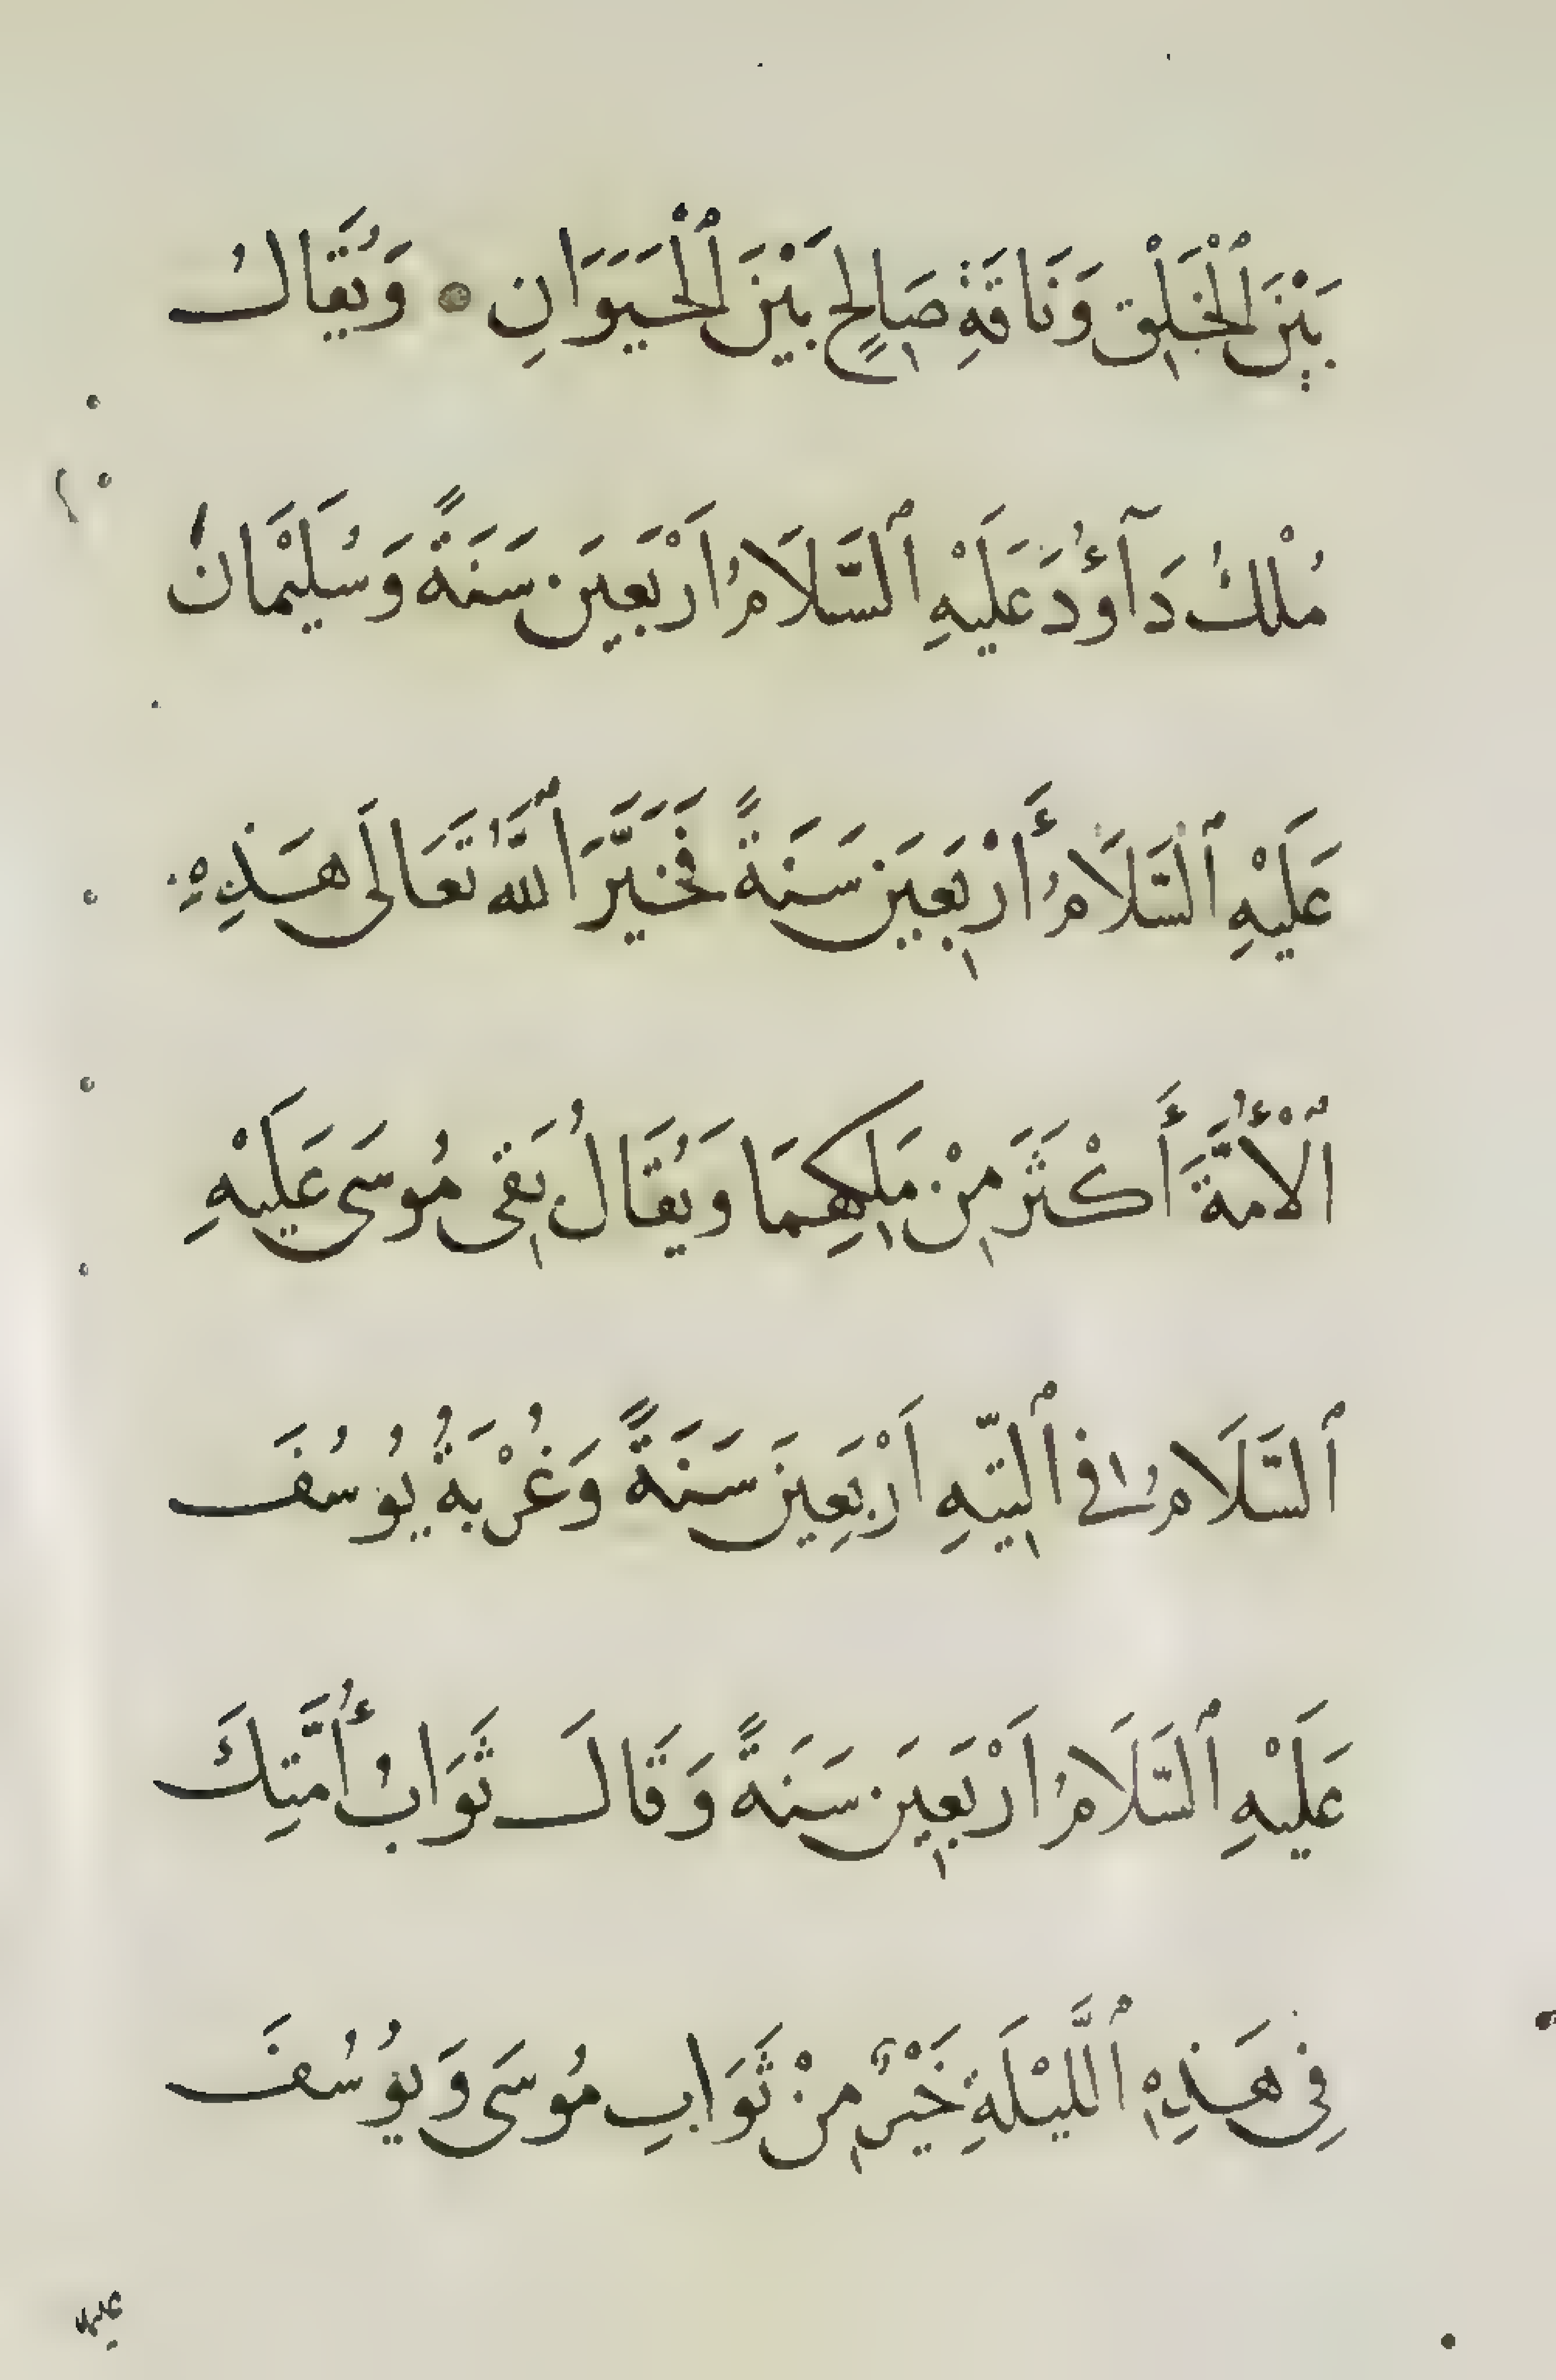 بَيْنَ ٱلْخَلْقِ وَنَاقَةِ صَالِحٍ بَيْنَ ٱلْحَيَوَانِ وَيُقَالُ
مُلْكُ دَآؤُدَ عَلَيْهِ ٱلسَّلَامُ اَرْبَعِينَ سَنَةً وَسُلَيْمَانُ
عَلَيْهِ ٱلسَّلَامُ أَرْبَعِينَ سَنَةً فَخَيَّرَ ٱللَّهُ تَعَالَى هَذِهِ
ٱلْأُمَّةَ أَكْثَرَ مِنْ مَلِكِهِمَا وَيُقَالُ بَقِى مُوسَى عَلَيْهِ
ٱلسَّلَامُ فِى ٱلتِّيهِ اَرْبَعِينَ سَنَةً وَغُرْبَةُ يُوسُفَ
عَلَيْهِ ٱلسَّلَامُ اَرْبَعِينَ سَنَةً وَقَالَ ثَوَابُ أُمَّتِكَ
فِى هَذِهِ ٱللَّيْلَةِ خَيْرٌ مِنْ ثَوَابِ مُوسَى وَيُوسُفَ
عليهما